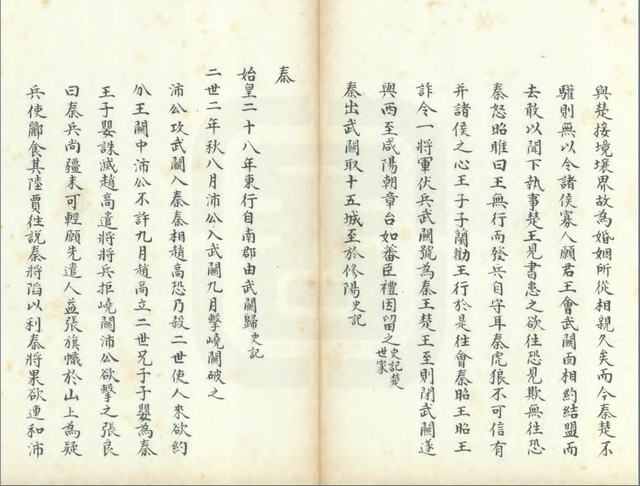 與楚接境壤界故為婚姻所從相親久矣而今秦楚不
驩則無以令諸侯寡人願君王會武關面相約結盟而
去敢以聞下執事楚王見書患之欲往恐見欺無往恐
秦怒昭睢曰王無行而發兵自守耳秦虎狼不可信有
并諸侯之心王子子蘭勸王行於是往會秦昭王昭王
詐令一將軍伏兵武關號為秦王楚王至則閉武關遂
與西至咸陽朝章台如蕃臣禮因留之史記楚世家
秦出武關取十五城至於修陽史記
秦
始皇二十八年東行自南郡由武關歸史記
二世二年秋八月沛公入武關九月擊嶢關破之
沛公攻武關入秦秦相趙高恐乃殺二世使人來欲約
分王關中沛公不許九月趙高立二世兄子子嬰為秦
王子嬰誅滅趙高遣將將兵拒嶢關沛公欲擊之張良
曰秦兵尚彊未可輕願先遣人益張旗幟於山上為疑
兵使酈食其陸賈往說秦將陷以利秦將果欲連和沛